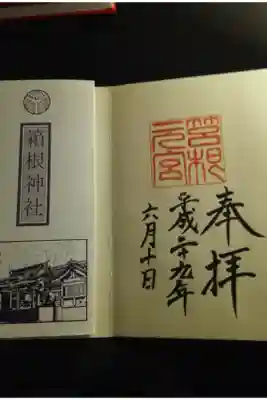 奉拝
箱根
元宮
平成二十九年
六月十日
箱根神社